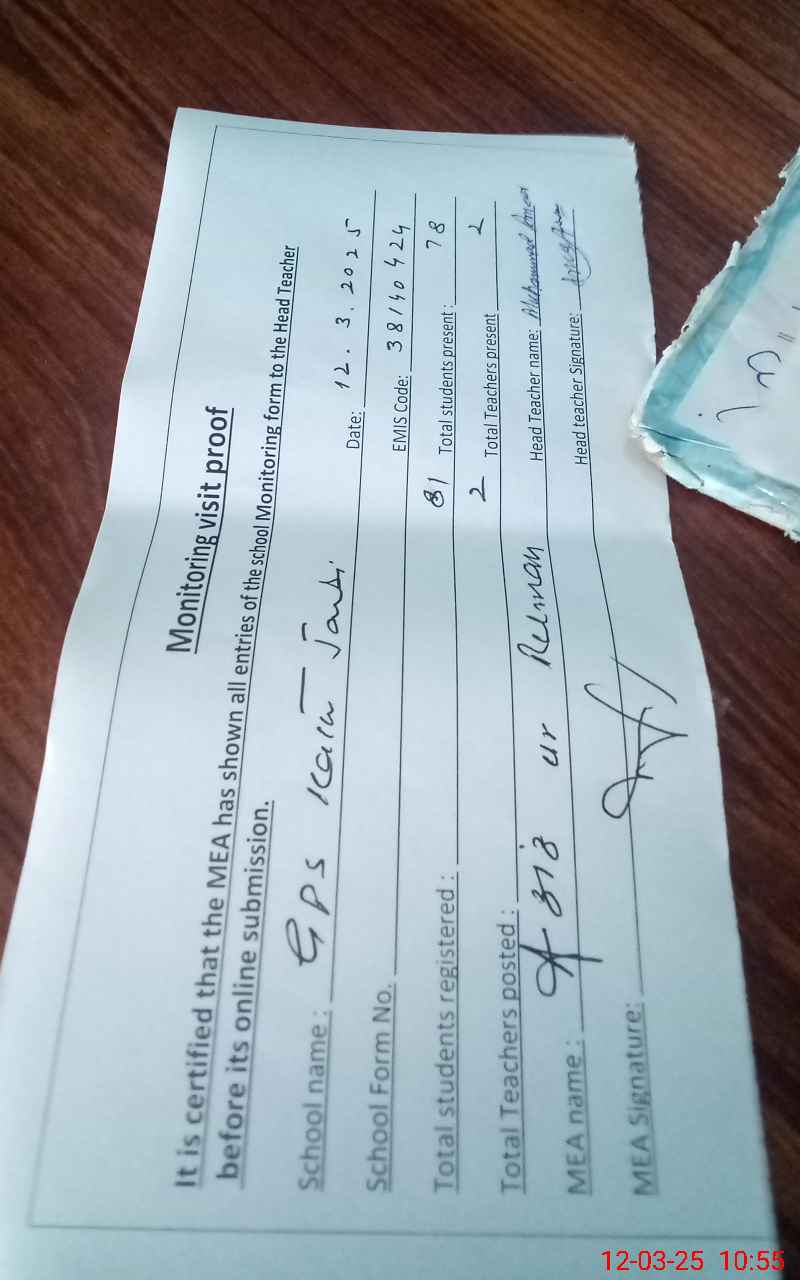 Monitoring visit proof
It is certified that the MEA has shown all entries of the school Monitoring form to the Head Teacher
before its online submission.
School name: GPS Date: 12.3.2025
School Form No. EMIS Code: 38140424
Total students registered: 81 Total students present: 78
Total Teachers posted: 2 Total Teachers present 2
MEA name: Aziz ur Rehman Head Teacher name: Muhammad
MEA Signature: Head teacher Signature:
12-03-25 10:55